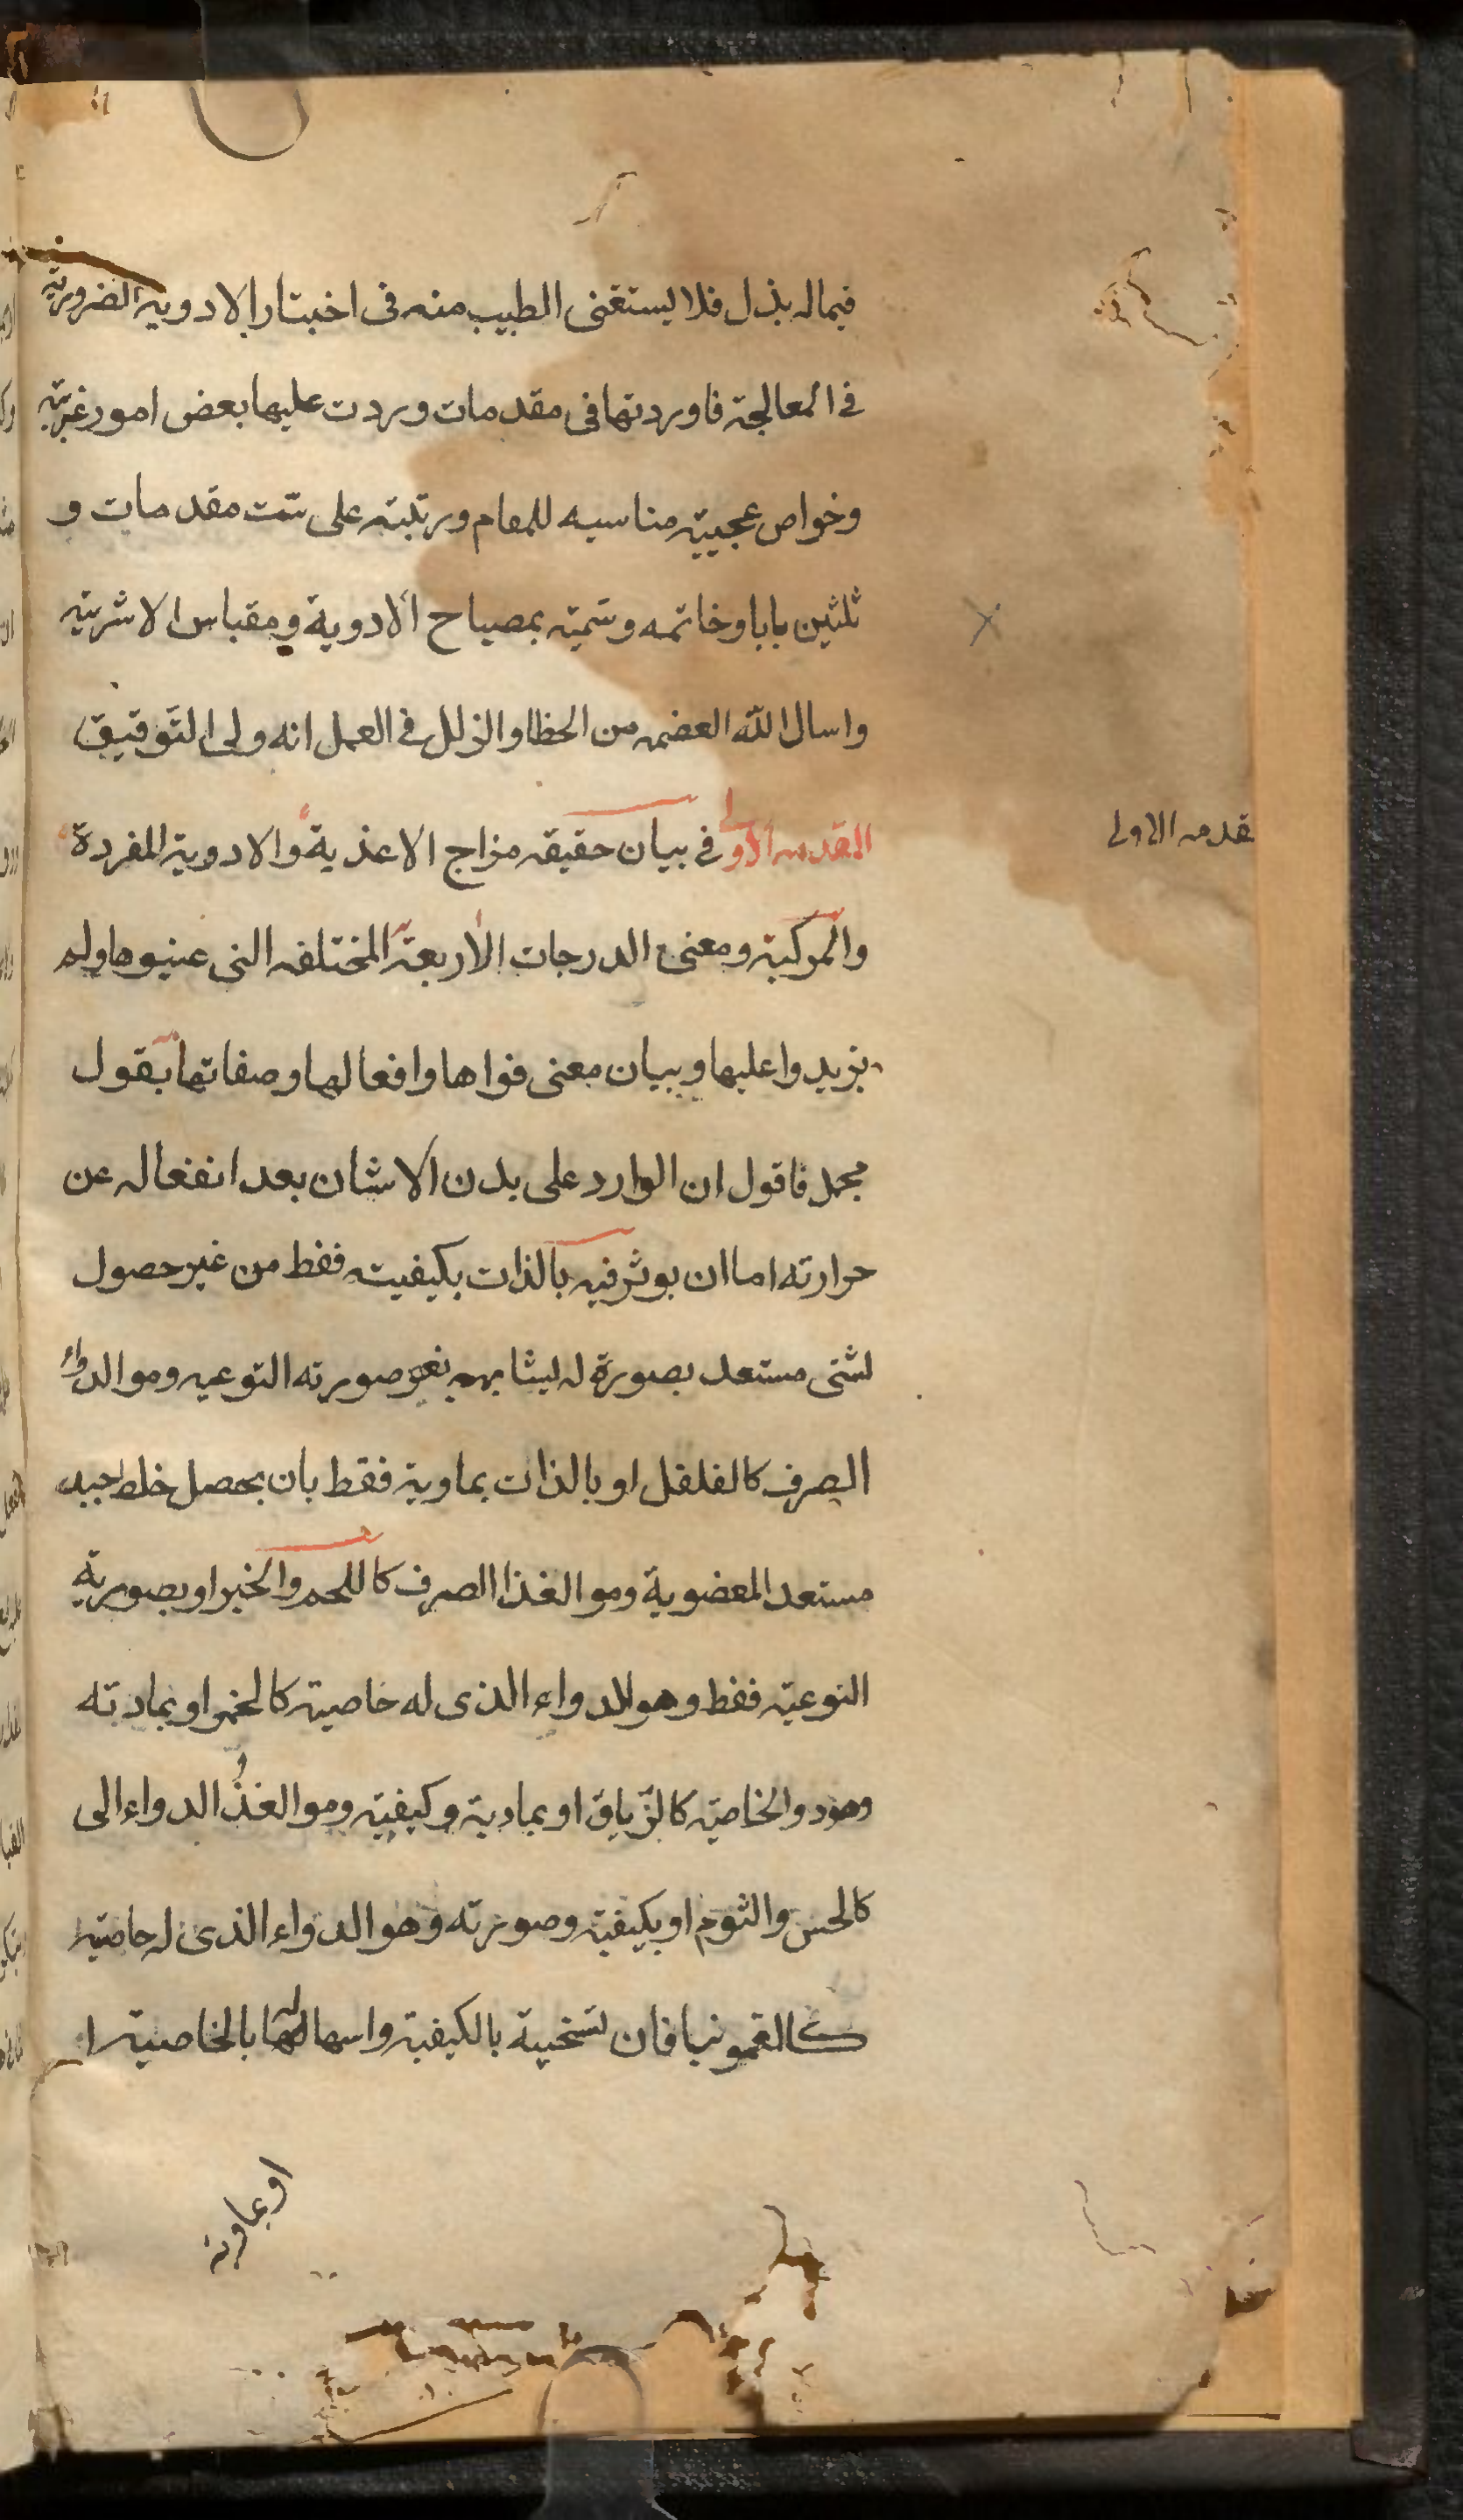 فيماله بذل فلا يستغنى الطبيب منه فى اختبار الادويه الضروريه
فى المعالجة فاوردتها فى مقدمات وردت عليها بعض امور غريبة
وخواص عجيبة مناسبه للمقام ورتبته على ستت مقدمات و
ثلثين بابا وخاتمه وسمّيته بمصباح الادوية ومقباس الاشربته
واسال الله العضمه من الخطا والزلل فى العمل انه ولى التوفيق
المقدمه الاولى فى بيان حقيقه مزاج الاغذية والادوية المفردة
قدمه الاولى
والمركبة ومعنى الدرجات الاربعة المختلفه التى عينوها ولم
يزيدوا عليها وبيان معنى قواها وافعالها وصفاتها بقول
مجمل فاقول ان الوارد على بدن الانسان بعد انفعاله عن
حرارته اما ان يوثر فيه بالذات بكيفيته فقط من غير حصول
لشئ مستعد بصورة له ليشابهه نغير صورته النوعيه وهو الدواء
الصرف كالفلفل او بالذات بماويته فقط بان يحصل خلط جيد
مستعد المعضوية وهو الغذا الصرف كاللحم والخبز او بصورية
النوعية فقط وهو الدواء الذى له خاصية كالخمر او بمادته
وهو ذو الخاصيّة كالترياق او بمادية وكيفية وهو الغذا الدواء الى
كالخس والثوم او بكيفية وصورته وهو الدواء الذى له خاصية
كالقمونيا فان تسخينه بالكيفية واسهالها بالخاصية ا
او بماوته